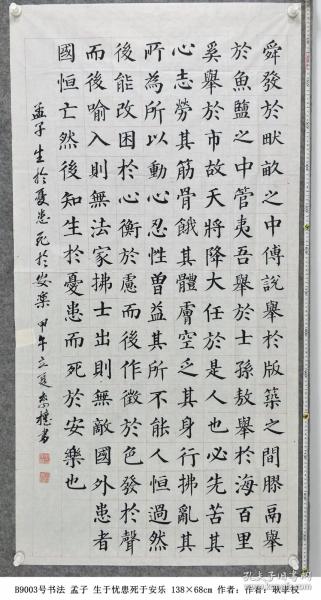 舜發於畎畝之中傅說舉於版築之間膠鬲舉
於魚鹽之中管夷吾舉於士孫敖舉於海百里
奚舉於市故天將降大任於是人也必先苦其
心志勞其筋骨餓其體膚空乏其身行拂亂其
所為所以動心忍性曾益其所不能人恒過然
後能改困於心衡於慮而後作徵於色發於聲
而後喻入則無法家拂士出則無敵國外患者
國恒亡然後知生於憂患而死於安樂也
孟子生於憂患死於安樂 甲午立夏書
B9003号书法 孟子 生于忧患死于安乐 138×68cm 作者：作者：耿孝权